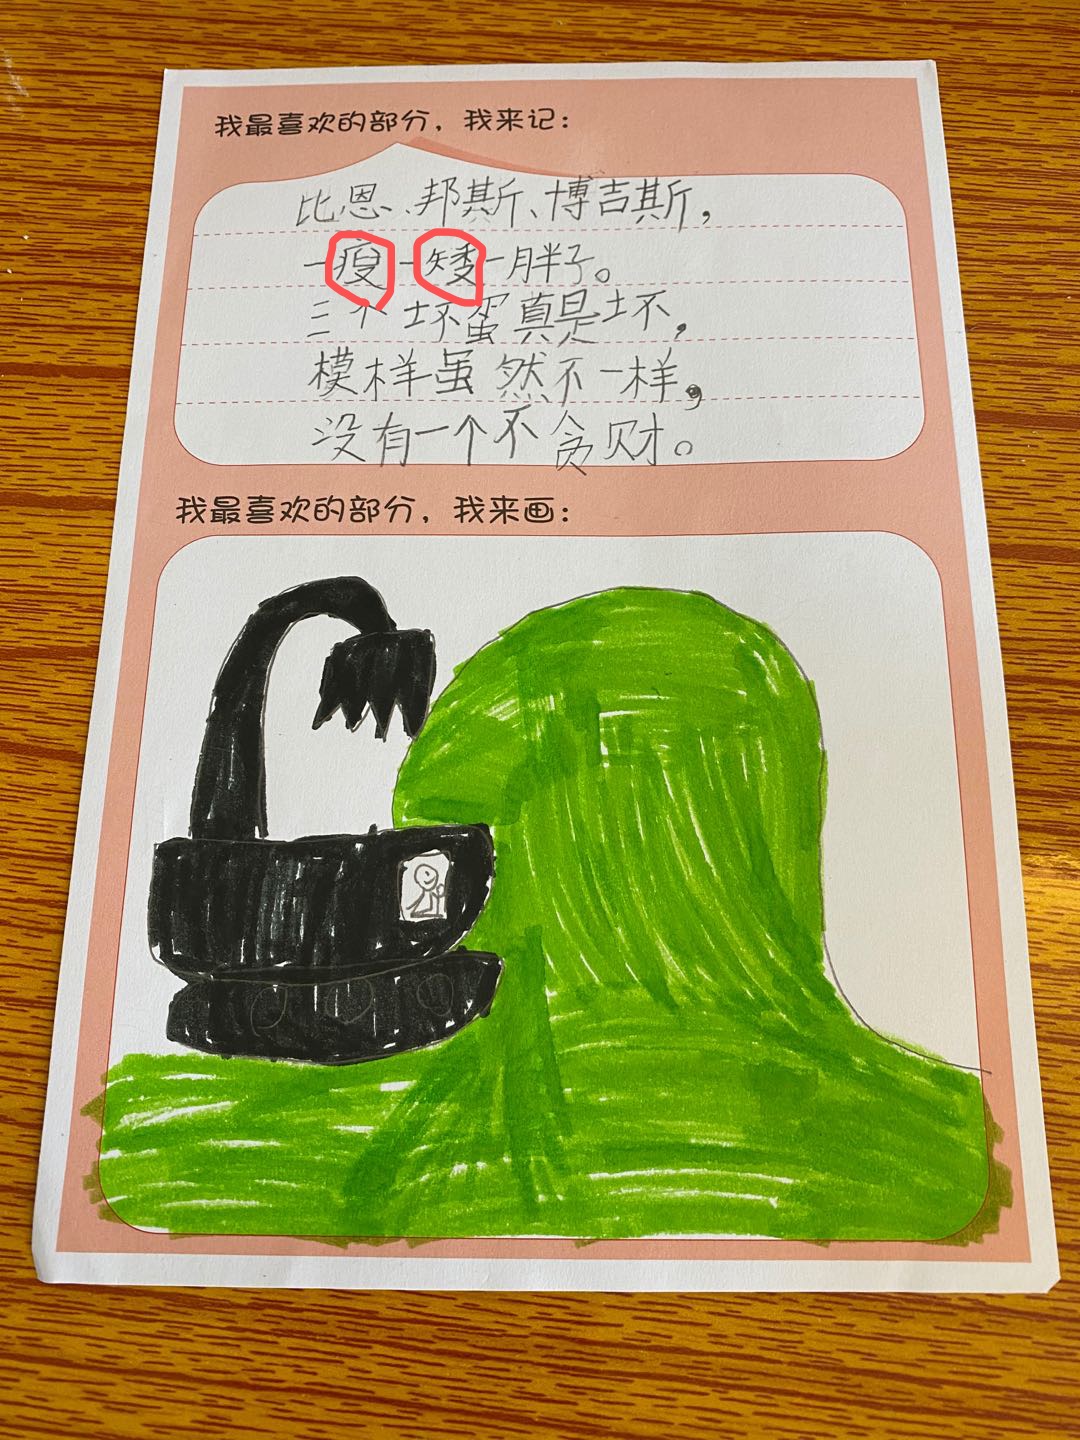 我最喜欢的部分，我来记：
比恩、邦斯、博吉斯，
一瘦一矮一胖子。
三个坏蛋真是坏，
模样虽然不一样，
没有一个不贪财。
我最喜欢的部分，我来画：